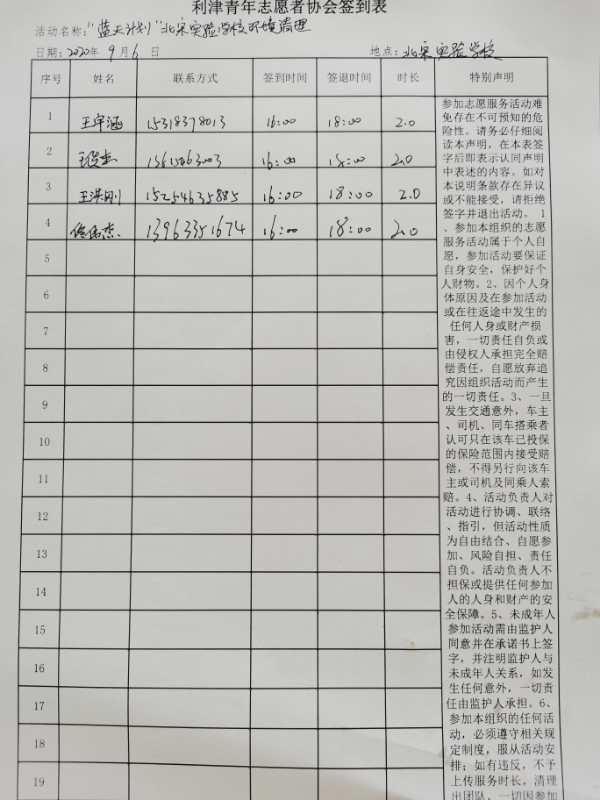 利津青年志愿者协会签到表
活动名称:"蓝天计划"北宋实验学校环境清理
日期:2020年9月6日 地点:北宋实验学校
序号 姓名 联系方式 签到时间 签退时间 时长 特别声明
1 王宇涵 15318378013 16:00 18:00 2.0
2 16:00 18:00 2.0
3 王洪刚 15254635885 16:00 18:00 2.0
4 13963351674 16:00 18:00 2.0
5
6
7
8
9
10
11
12
13
14
15
16
17
18
19
参加志愿服务活动难
免存在不可预知的危
险性。请务必仔细阅
读本声明，在本表签
字后即表示认同声明
中表述的内容。如对
本说明条款存在异议
或不能接受，请拒绝
签字并退出活动。 1
、参加本组织的志愿
服务活动属于个人自
愿，参加活动要保证
自身安全，保护好个
人财物。2、因个人身
体原因及在参加活动
或在往返途中发生的
任何人身或财产损
害，一切责任自负或
由侵权人承担完全赔
偿责任，自愿放弃追
究因组织活动而产生
的一切责任。3、一旦
发生交通意外，车主
、司机、同车搭乘者
认可只在该车已投保
的保险范围内接受赔
偿，不得另行向该车
主或司机及同乘人索
赔。4、活动负责人对
活动进行协调、联络
、指引，但活动性质
为自由结合、自愿参
加、风险自担、责任
自负。活动负责人不
担保或提供任何参加
人的人身和财产的安
全保障。5、未成年人
参加活动需由监护人
同意并在承诺书上签
字，并注明监护人与
未成年人关系，如发
生任何意外，一切责
任由监护人承担。6、
参加本组织的任何活
动，必须遵守相关规
定制度，服从活动安
排；如有违反，不予
上传服务时长，清理
出团队，一切因参加